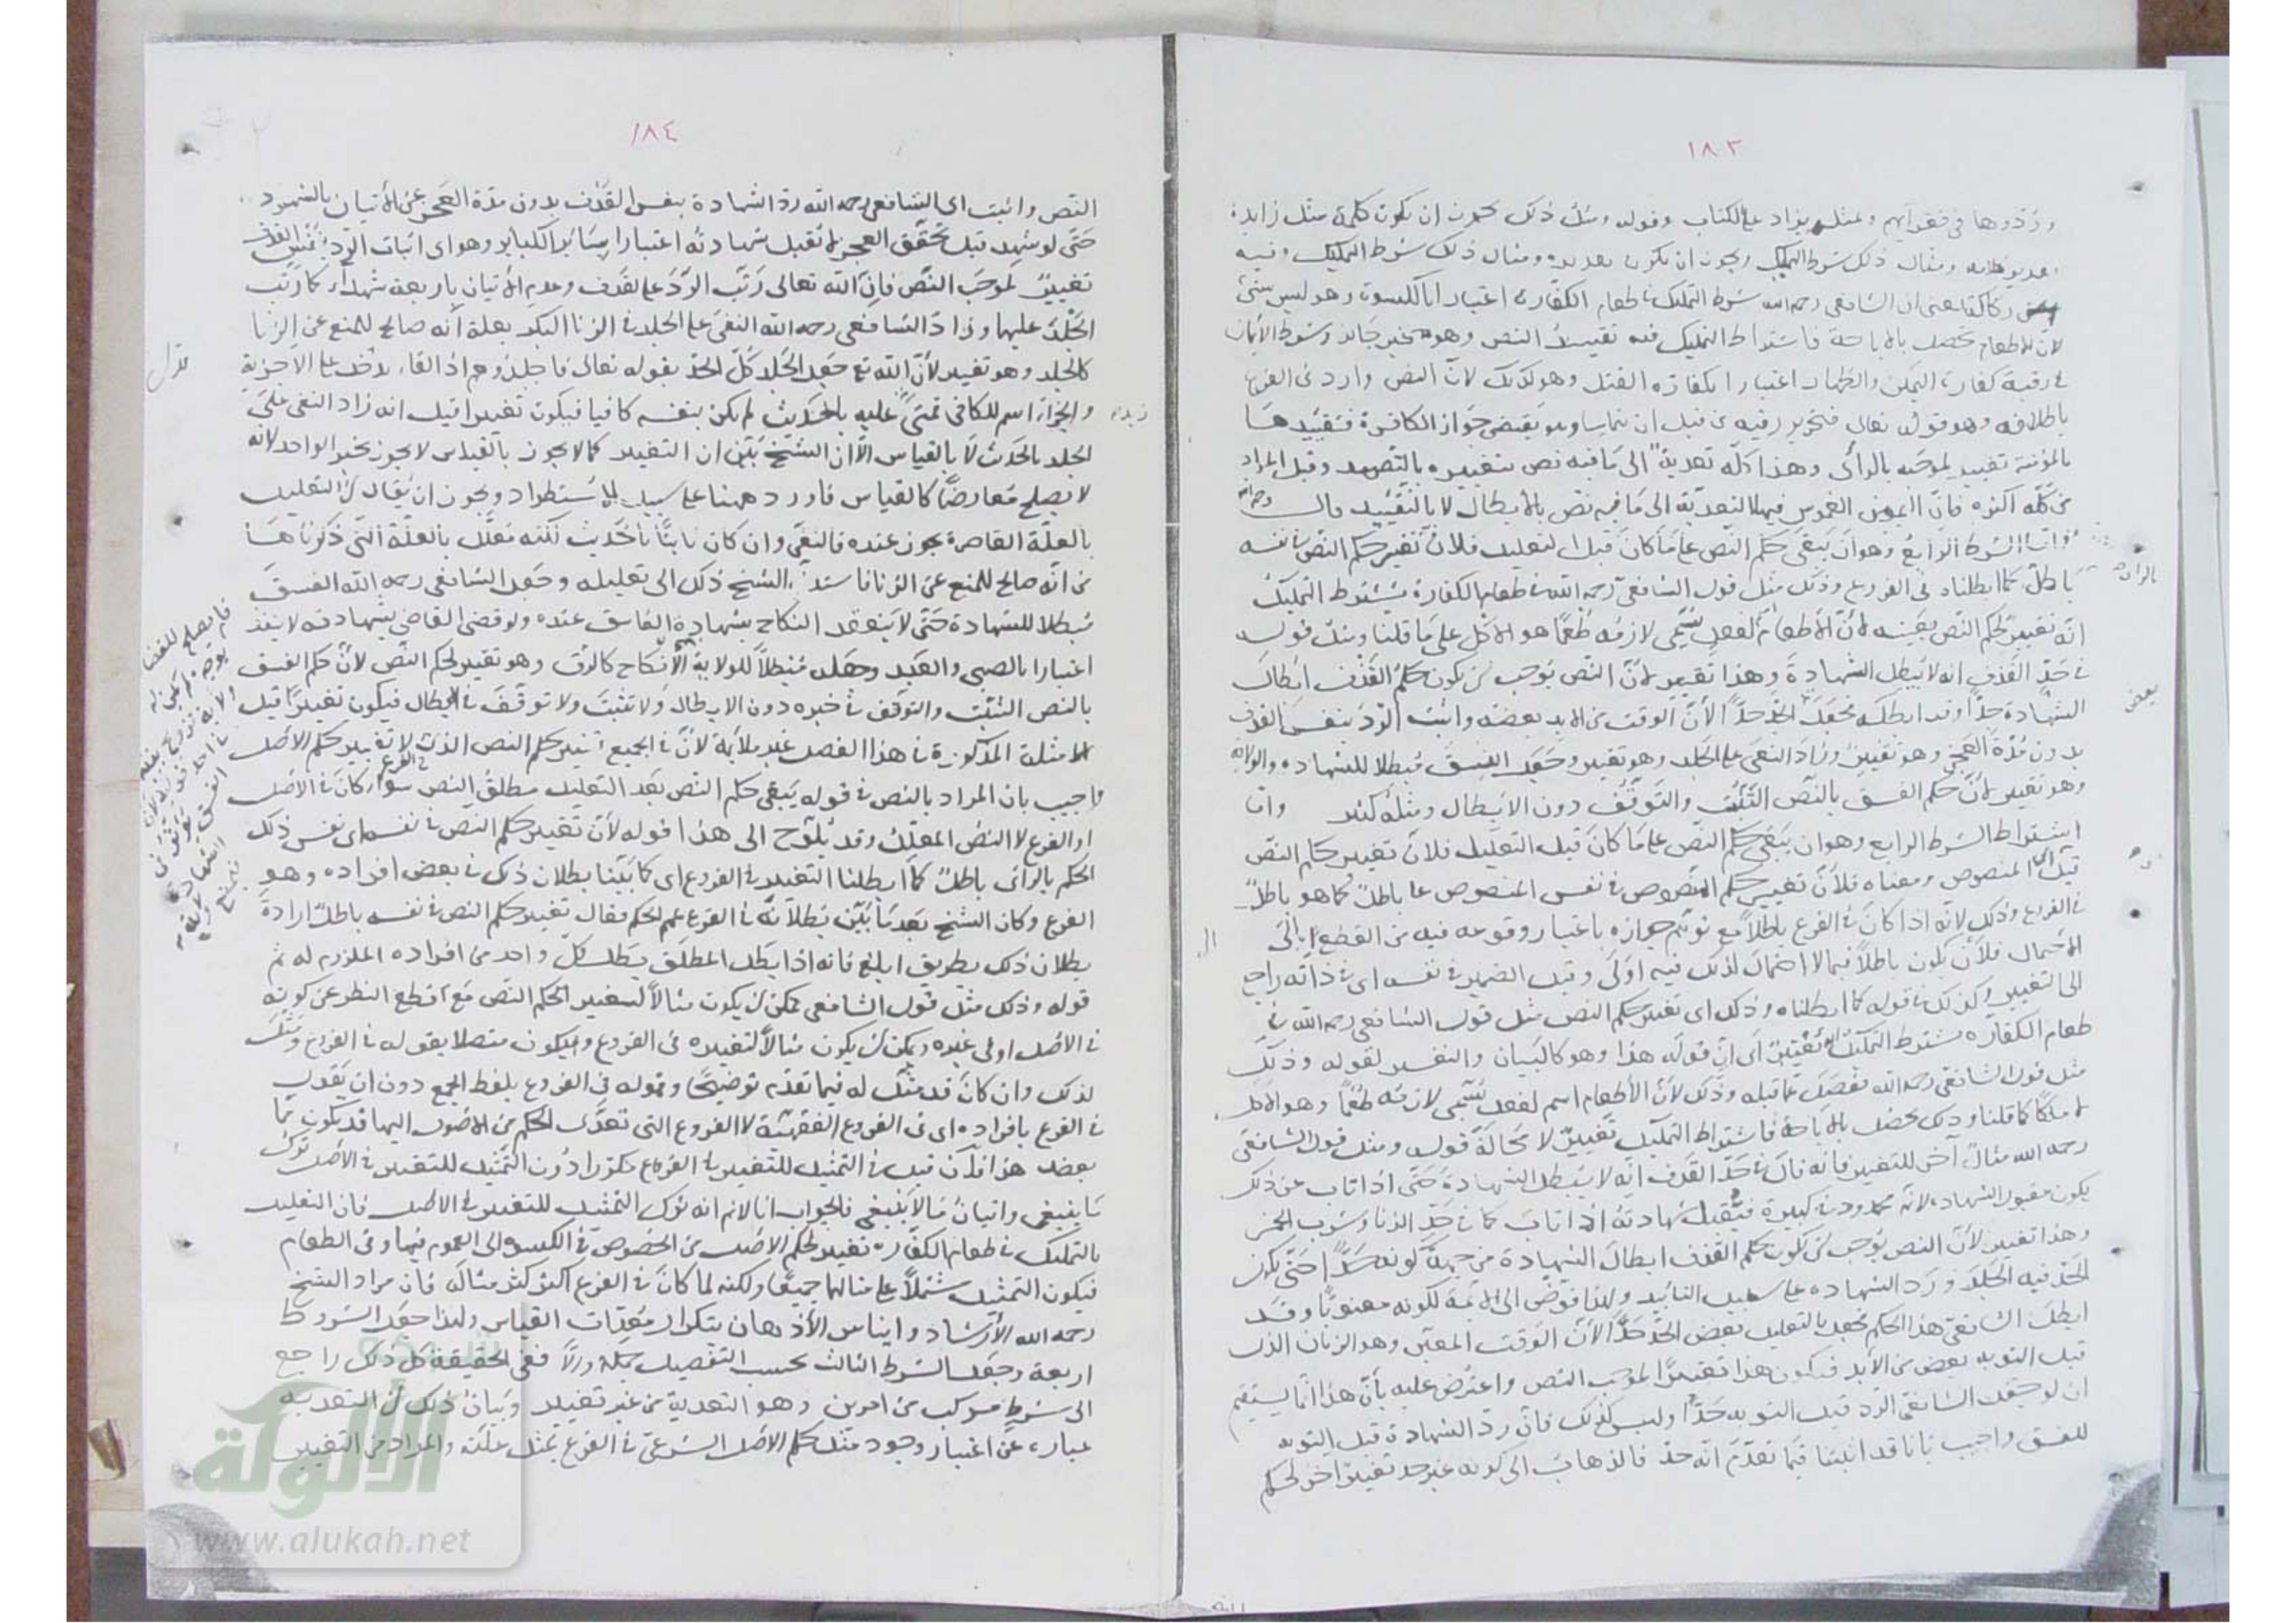 ١٨٣
وردوها في فقرائهم وبمثله يزاد على الكتاب وقوله ومثل ذلك يجوز ان يكون كلمة مثل زايدة
ومثال ذلك شرط التمليك ويجوز ان يكون ومثال ذلك شرط التمليك وفيه
ان الشافعي رحمه الله شرط التمليك في طعام الكفارة اعتبارا بالكسوة وهو ليس بشئ
لان الاطعام يحصل بالاباحة فاشتراط التمليك فيه تقييد النص وهو غير جائز وشرط الأيمان
في رقبة كفارة اليمين والظهار اعتبارا بكفارة القتل وهو كذلك لانّ النص وارد في الفرع
باطلاقه وهو قوله تعالى فتحرير رقبة من قبل ان يتماسا وهو يقتضي جواز الكافرة فتقييدها
بالمؤمنة تغيير لموجبه بالرأى وهذا كلّه تعدية الى ما فيه نص بتغييره بالتقييد وقيل المراد
من كلّه اكثره فانّ اليمين الغموس فيها التعدية الى ما فيه نص بالابطال لا بالتقييد قال رحمه الله
وامّا الشرط الرابع وهو ان يبقى حكم النّص على ما كان قبل التعليل فلانّ تغيير حكم النّص في نفسه
باطل كما ابطلناه في الفروع وذلك مثل قول الشافعي رحمه الله في طعام الكفارة يشترط التمليك
انّه تغيير لحكم النّص بعينه لانّ الاطعام اسم لفعل يسمّى لازمه طُعمًا هو الاكل على ما قلنا ومثل قوله
في حدّ القذف انه لا يُبطل الشهادة وهذا تغيير لانّ النّص يوجب ان يكون حكم القذف ابطال
الشهادة حدّا وقد ابطله فجعل بعض الحدّ حدًّا لأنّ الوقت من الابد بعضه واثبت الردّ بنفس القذف
بدون مُدّة العجز وهو تغييرٌ وزاد النفى على الجلد وهو تغيير وجعل الفسق مُبطلا للشهادة والولاية
وهو تغيير لانّ حكم الفسق بالنّص التّثبّت والتّوقّف دون الابطال ومثله كثير وامّا
اشتراط الشرط الرابع وهو ان يبقى حكم النّص على ما كان قبل التعليل فلانّ تغيير حكم النّص
قيل اى المنصوص ومعناه فلأنّ تغيير حكم المنصوص في نفس المنصوص عليه باطلٌ كما هو باطلٌ
في الفروع وذلك لانّه اذا كان في الفرع باطلاً مع توهّم جوازه باعتبار وقوعه فيه من القطع الى
الاحتمال فلأن يكون باطلاً فيما لا احتمال لذلك فيه اَولى وقيل الضمير في نفسه اى في ذاته راجع
الى التغيير وكذلك في قوله كما ابطلناه وذلك اى تغيير حكم النص مثل قول الشافعي رحمه الله في
طعام الكفارة يشترط التمليك انه تغييرٌ اى انّ قوله هذا وهو كالبيان والتفسير لقوله وذلك
مثل قول الشافعي رحمه الله تفصيل عمّا قبله وذلك لأنّ الأطعام اسم لفعل يُسمّى لازمه طُعمًا وهو الاكل
لا ملكًا كما قلنا وذلك يحصل بالاباحة فاشتراط التمليك تغييرٌ لا محالة قوله ومثل قول الشافعي
رحمه الله مثالٌ آخر للتغيير فانه قال في حدّ القذف انّه لا يُبطل الشهادة حتى اذا تاب عن ذلك
يكون مقبول الشهادة لانّه محدود في كبيرة فتُقبل شهادته اذا تاب كما في حدّ الزنا وشرب الخمر
وهذا تغيير لأنّ النص يُوجب ان يكون حكم القذف ابطال الشهادة من جهة كونه حدًّا حتى يكون
الحدّ فيه الجلد وردّ الشهادة على سبيل التأبيد ولهذا فوّض الى الائمة لكونه وقد
ابطل الشافعي هذا الحكم فجعل بالتعليل بعض الحدّ حدًّا لأنّ الوقت المعيّن وهو الزمان الذى
قبل التوبة بعض من الأبد فيكون هذا تغييرًا لموجب النّص واعتُرض عليه بأنّ هذا انّما يستقيم
ان لو جعل الشافعي الردّ قبل التوبة حدًّا وليس كذلك فانّ ردّ الشهادة قبل التوبة
للفسق واجيب بانا قد اثبتنا فيما تقدّم انّه حدّ فالذهاب الى كونه غير حد تغييرٌ اخر لحكم
١٨٤
النّص واثبت اى الشافعي رحمه الله ردّ الشهادة بنفس القذف بدون مدّة العجز عن الاتيان بالشهود
حتّى لو شهد قبل تحقّق العجز لا تُقبل شهادته اعتبارا بسائر الكبائر وهو اى اثبات الردّ بنفس القذف
تغييرٌ لموجَب النّص فانّ الله تعالى رتّب الردّ على القذف وعدم الأتيان باربعة شهداء كما رتّب
الجلد عليها وزادَ الشافعي رحمه الله النفىَ على الجلد في الزنا البكر بعلة أنّه صالح للمنع عن الزنا
كالجلد وهو تغيير لأنّ الله تع جعل الجلد كلّ الحدّ بقوله تعالى فاجلدوهم اذ الفاء يدخل على الاجزية
والجزاء اسم للكافى فمتى زيد عليه بالحديث لم يكن بنفسه كافيا فيكون تغييرا قيل انه زاد النفى على
الجلد بالحديث لا بالقياس الّا انّ الشيخ بيّن ان التغيير كما لا يجوز بالقياس لا يجوز بخبر الواحد لانّه
لا يصلح مُعارضًا كالقياس فاورد ههنا على سبيل الاستطراد ويجوز ان يُقال انّ التعليل
بالعلّة القاصرة يجوز عنده فالنفى وان كان ثابتًا بالحديث لكنّه مُعلّل بالعلّة التى ذكرناها
من انّه صالح للمنع عن الزنا فاسند الشيخ ذلك الى تعليله وجعل الشافعي رحمه الله الفسق
مُبطلا للشهادة حتى لا ينعقد النكاح بشهادة الفاسق عنده ولو قضى القاضى بشهادته لا ينفذ
اعتبارا بالصبى والعبد وجعله مُبطلاً للولاية الانكاح كالرقّ وهو تغيير لحكم النّص لأنّ حكم الفسق
بالنص التثبّت والتوقّف في خبره دون الابطال ولا تثبّت ولا توقّف في الابطال فيكون تغييرًا قيل
الامثلة المذكورة في هذا الفصل غير ملائمة لأنّ في الجميع تغيير حكم النص الذى في الفرع لا تغيير حكم الأصل
واجيب بان المراد بالنص في قوله يبقى حكم النّص بعد التعليل مطلقُ النّص سواء كان في الأصل
او الفرع لا النّصُ المعلّل وقد يُلوّح الى هذا قوله لأن تغيير حكم النص في نفسه اى نفس ذلك
الحكم بالرأى باطلٌ كما ابطلنا التغيير في الفروع اى كما بيّنا بطلان ذلك في بعض افراده وهو
الفرع وكان الشيخ بعد ما بيّن بطلانه في الفرع عمم الحكم فقال تغيير حكم النص في نفسه باطلٌ ارادةَ
بطلان ذلك بطريق ابلغ فانه اذا بطل المطلق بطل كل واحد من افراده الملزوم له ثم
قوله وذلك مثل قول الشافعي يمكن ان يكون مثالاً لتغيير الحكم النّص مع قطع النظر عن كونه
في الاصل او في غيره ويمكن ان يكون مثالاً لتغييره في الفروع ويكون متصلا بقوله في الفروع ومثّل
لذلك وان كان قد مثّل له فيما تقدّم توضيحًا وقوله في الفروع بلفظ الجمع دون ان يقول
في الفرع بافراده اى في الفروع الفقهيّة لا الفروع التى تعدّى الحكم من الاصول اليها قد يكون ممّا
بعضد هذا فأن قيل في التمثيل للتغيير في الفروع تكرّر ودُون التمثيل للتغيير في الأصل تركُ
ما ينبغى واتيانُ ما لا ينبغى فالجواب انا لانم انه ترك التمثيل للتغيير في الاصل فان التعليل
بالتمليك في طعام الكفّارة تغيير لحكم الاصل من الخصوص في الكسوة الى العموم فيها وفى الطعام
فيكون التمثيل مشتملاً على مثالهما جميعًا ولكنه لما كان في الفرع اكثر كثر مثاله فان مراد الشيخ
رحمه الله الأرشاد وايناس الأذهان بتكرار مُعدّات القياس ولهذا جعل الشروط
اربعة وجعل الشرط الثالث بحسب التفصيل جملة والّا ففى الحقيقة كل ذلك راجع
الى شرط مركب من امرين وهو التعدية من غير تغيير وبيانُ ذلك انّ التعدية
عبارة عن اعتبار وجود مثل حكم الأصل الشرعىّ في الفرع بمثل علّته والمراد من التغيير
الألوكة
www.alukah.net